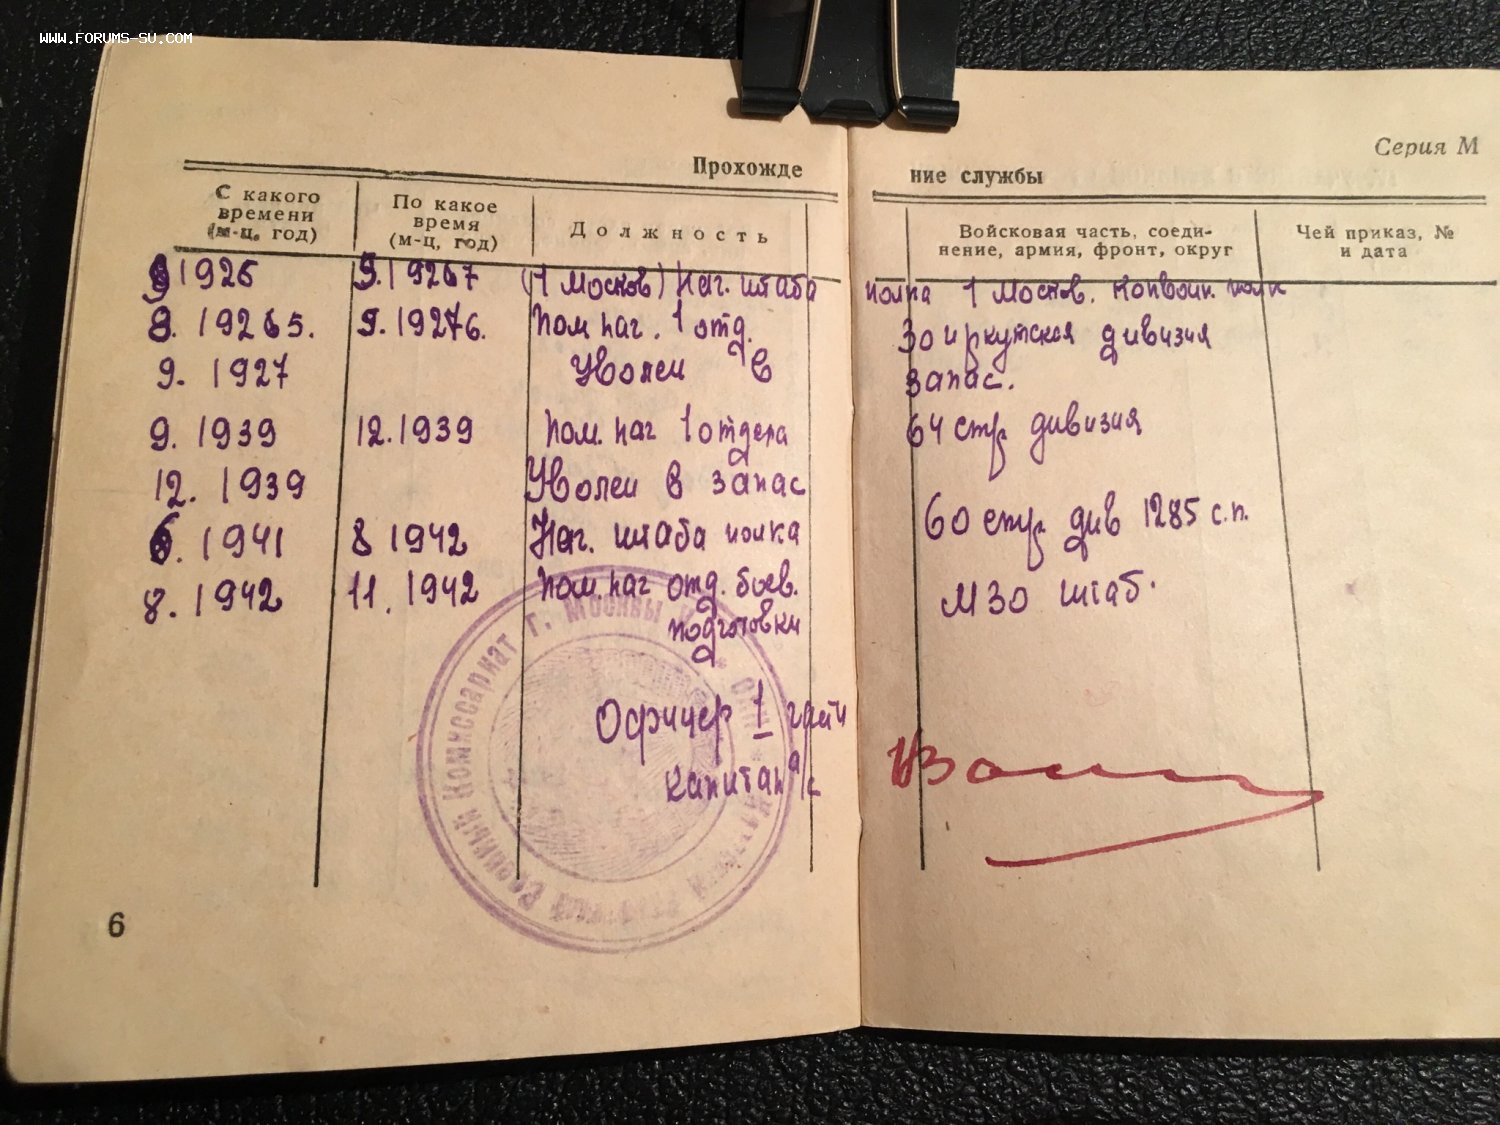 WWW.FORUMS-SU.COM
Серия М
Прохожде ние службы
С какого времени (м-ц, год) По какое время (м-ц, год) Должность Войсковая часть, соеди-нение, армия, фронт, округ Чей приказ, № и дата
9 1926 9.19267 (1 Москов) Нач. штаба полка 1 Москов. Конвойн. полк
8. 19265. 9.1927б. Пом нач. 1 отд. 30 иркутская дивизия
9. 1927 Уволен в запас.
9. 1939 12.1939 Пом. нач 1 отдела 64 стр. дивизия
12. 1939 Уволен в запас
6. 1941 8 1942 Нач. штаба полка 60 стр. див 1285 с.п.
8. 1942 11. 1942 Пом. нач отд. боев. МЗО штаб.
подготовки
Офицер 1 части
Капитан а/с
Военный Комиссариат г. Москвы
6